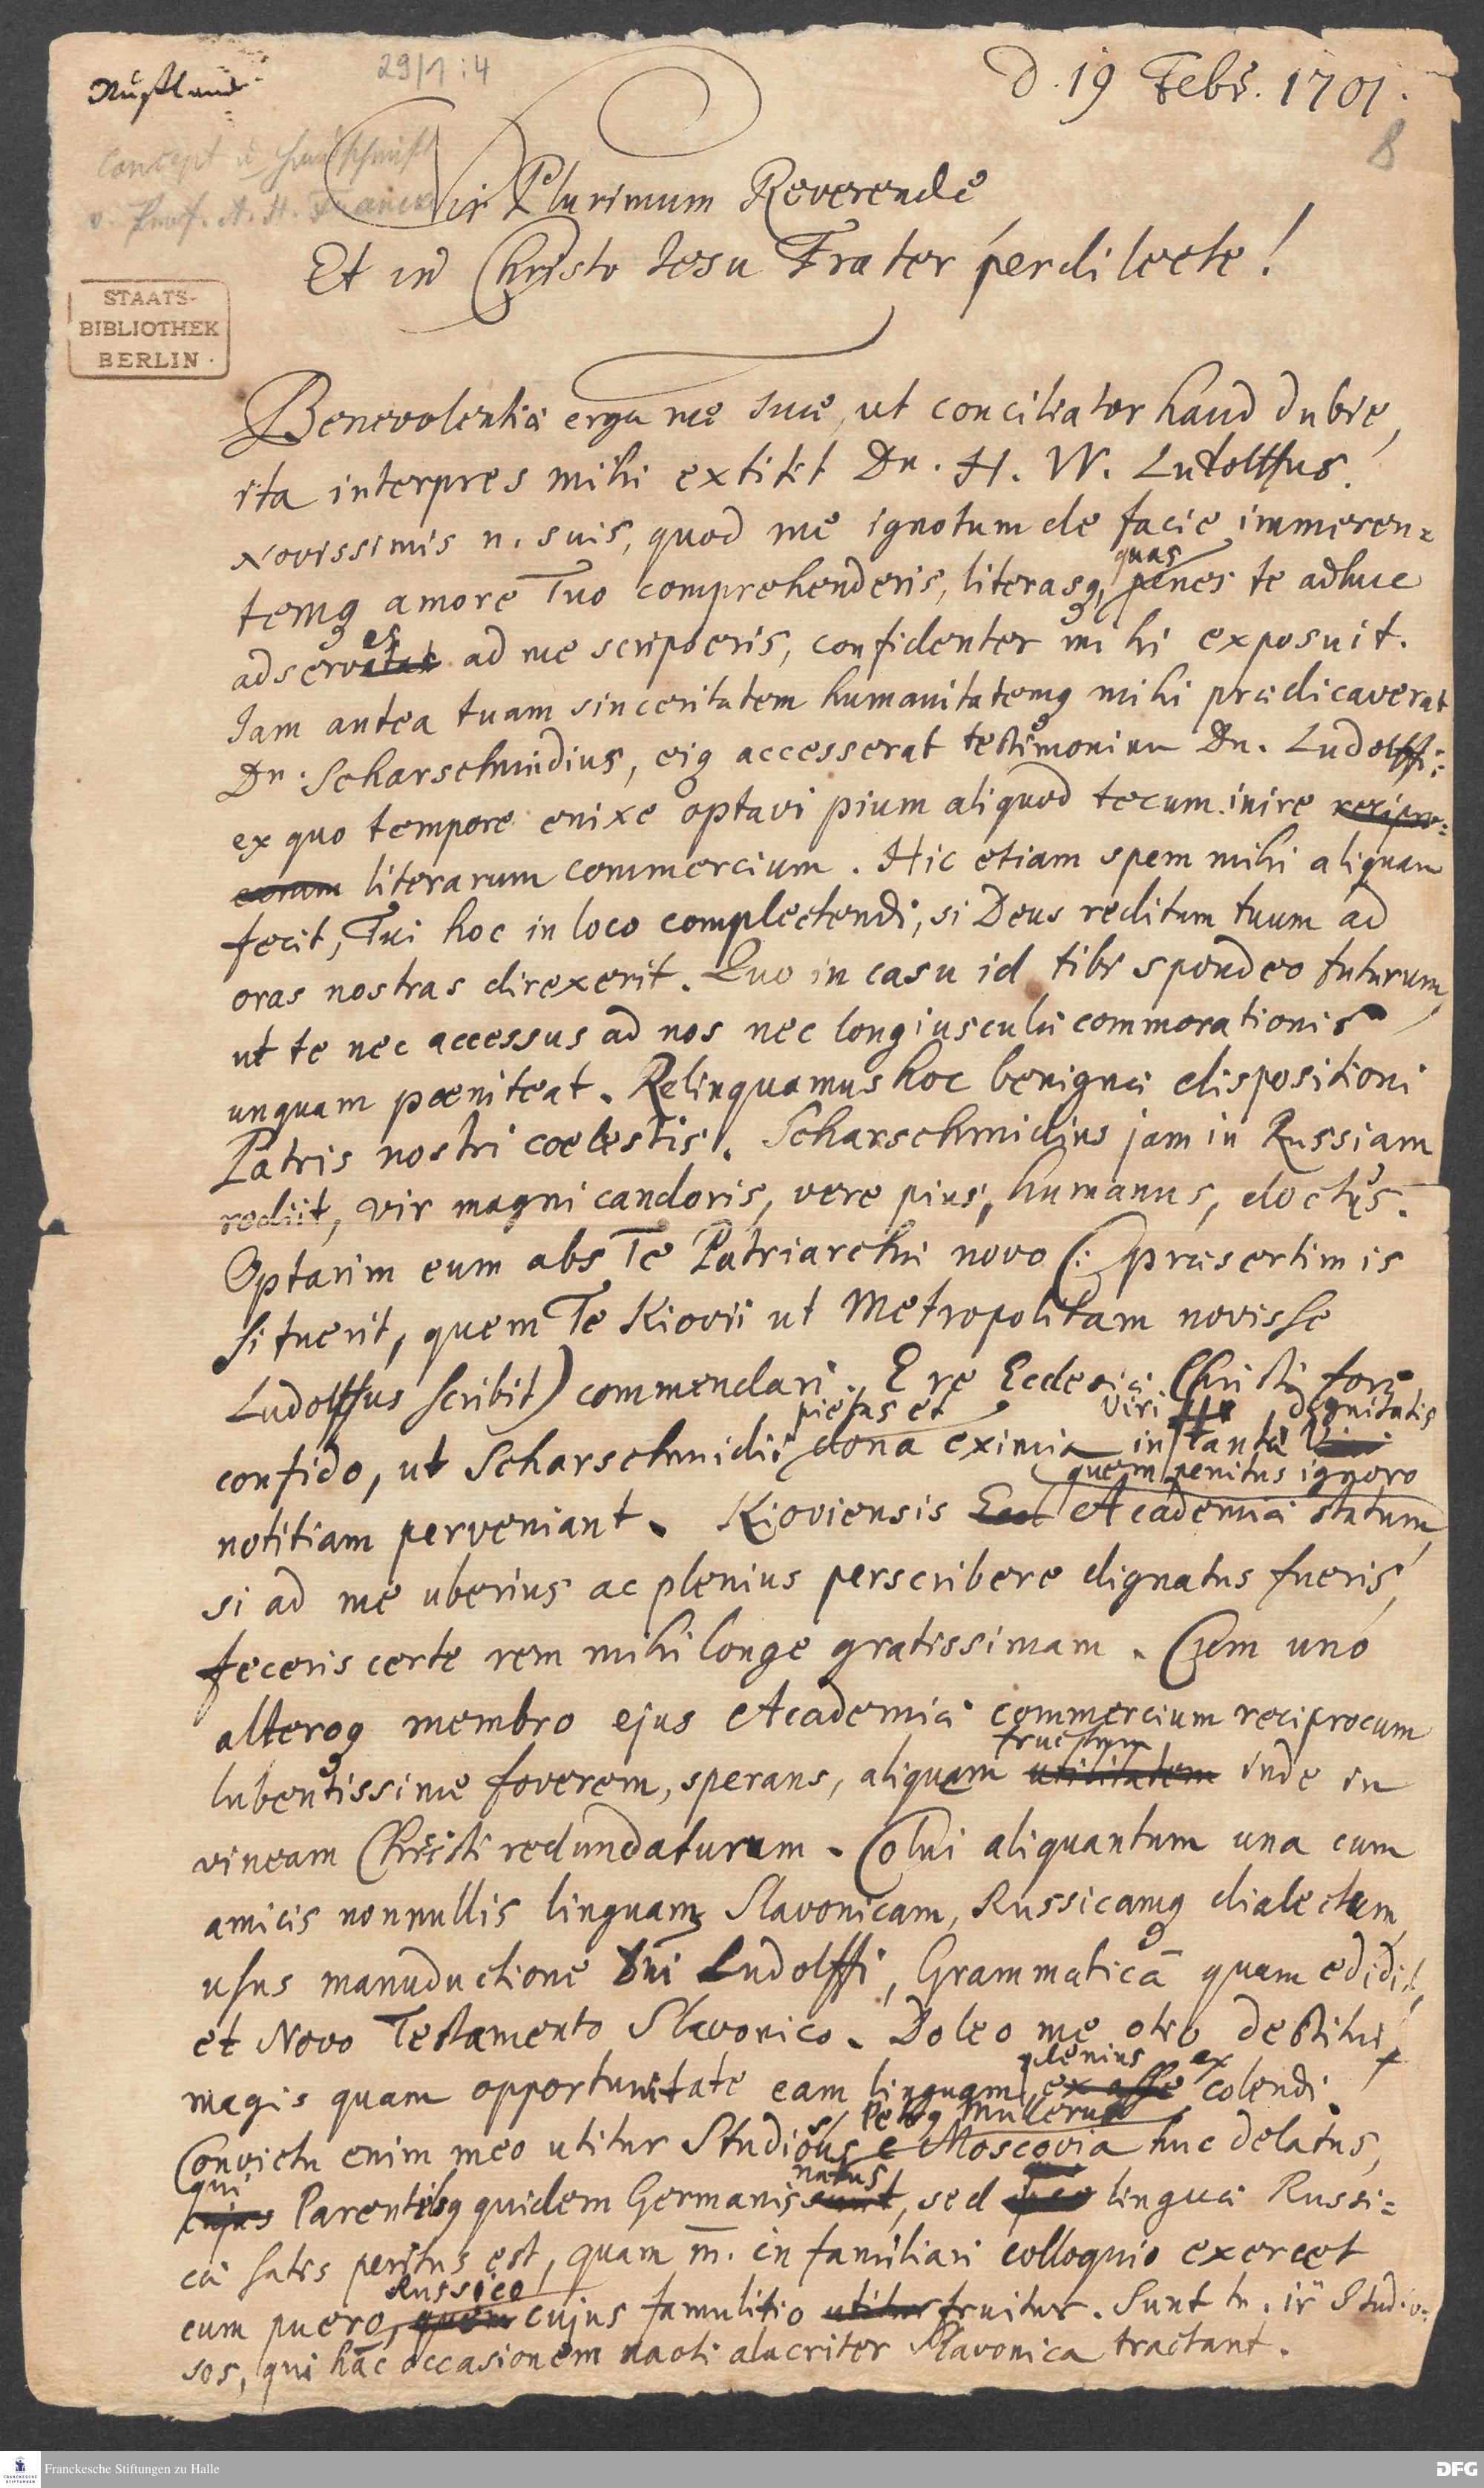 Rußland
29/1:4
d. 19 Febr. 1701.
8
Concept u Handschrift
v. Prof. A. H. Francke
Vir Plurimum Reverende
Et in Christo Jesu Frater perdilecte!
STAATS-
BIBLIOTHEK
BERLIN.
Benevolentiæ erga me tuæ, ut conciliator haud dubie,
ita interpres mihi extitit Dn. H. W. Ludolffus.
Novissimis n. suis, quod me ignotum de facie immeren=
temq amore Tuo comprehenderis, literasq, quas penes te adhuc
adserves ad me scripseris, confidenter mihi exposuit.
Jam antea tuam sinceritatem humanitatemq mihi prædicaverat
Dn. Scharschmidius, eiq accesserat testimonium Dn. Ludolffi;
ex quo tempore enixe optavi pium aliquod tecum inire recipro=
corum literarum commercium. Hic etiam spem mihi aliquam
fecit, Tui hoc in loco complectendi, si Deus reditum tuum ad
oras nostras direxerit. Quo in casu id tibi spondeo futurum,
ut te nec accessus ad nos nec longiusculæ commorationis
unquam pœniteat. Relinquamus hoc benignæ dispositioni
Patris nostri cœlestis. Scharschmidius jam in Russiam
rediit, vir magni candoris, vere pius, humanus, doctus.
Optarim eum abs Te Patriarchæ novo (: præsertim is
si fuerit, quem Te Kiovii ut Metropolitam novisse
Ludolffus scribit) commendari. E re Ecclesiæ Christi fore
confido, ut Scharschmidii pietas et dona eximia in tantæ viri dignitatis
notitiam perveniant. Kioviensis Academiæ statum, quem penitus ignoro
si ad me uberius ac plenius perscribere dignatus fueris,
feceris certe rem mihi longe gratissimam. Cum uno
alteroq membro ejus Academiæ commercium reciprocum
lubentissime foverem, sperans, aliquem fructum utilitatem inde in
vineam Christi redundaturum. Colui aliquantum una cum
amicis nonnullis linguam Slavonicam, Russicamq dialectum,
usus manuductione Dni Ludolffi, Grammaticā quam edidit,
et Novo Testamento Slavonico. Doleo me otio destitui
magis quam opportunitate eam linguam plenius ex asse colendi.
Convictu enim meo utitur Studiosus Petrq Mullerus e Moscovia huc delatus,
qui cujus Parentibq quidem Germanis natus, sed linguæ Russi=
cæ satis peritus est, quam m. in familiari colloquio exercet
cum puero Russico, cujus famulitio utitur fruitur. Sunt tn. ii Studio=
sos, qui hāc occasionem nacti alacriter Slavonica tractant.
Franckesche Stiftungen zu Halle
DFG